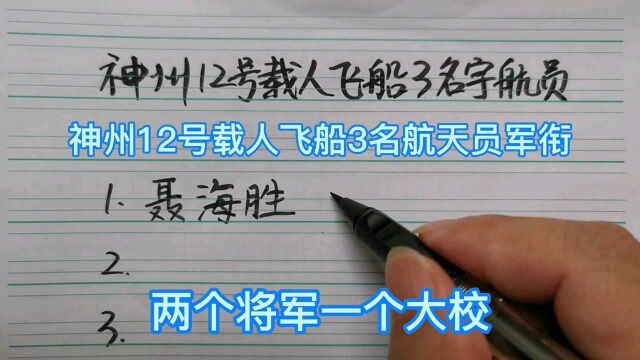 神州12号载人飞船3名宇航员
神州12号载人飞船3名航天员军衔
1. 聂海胜
2.
两个将军一个大校
3.